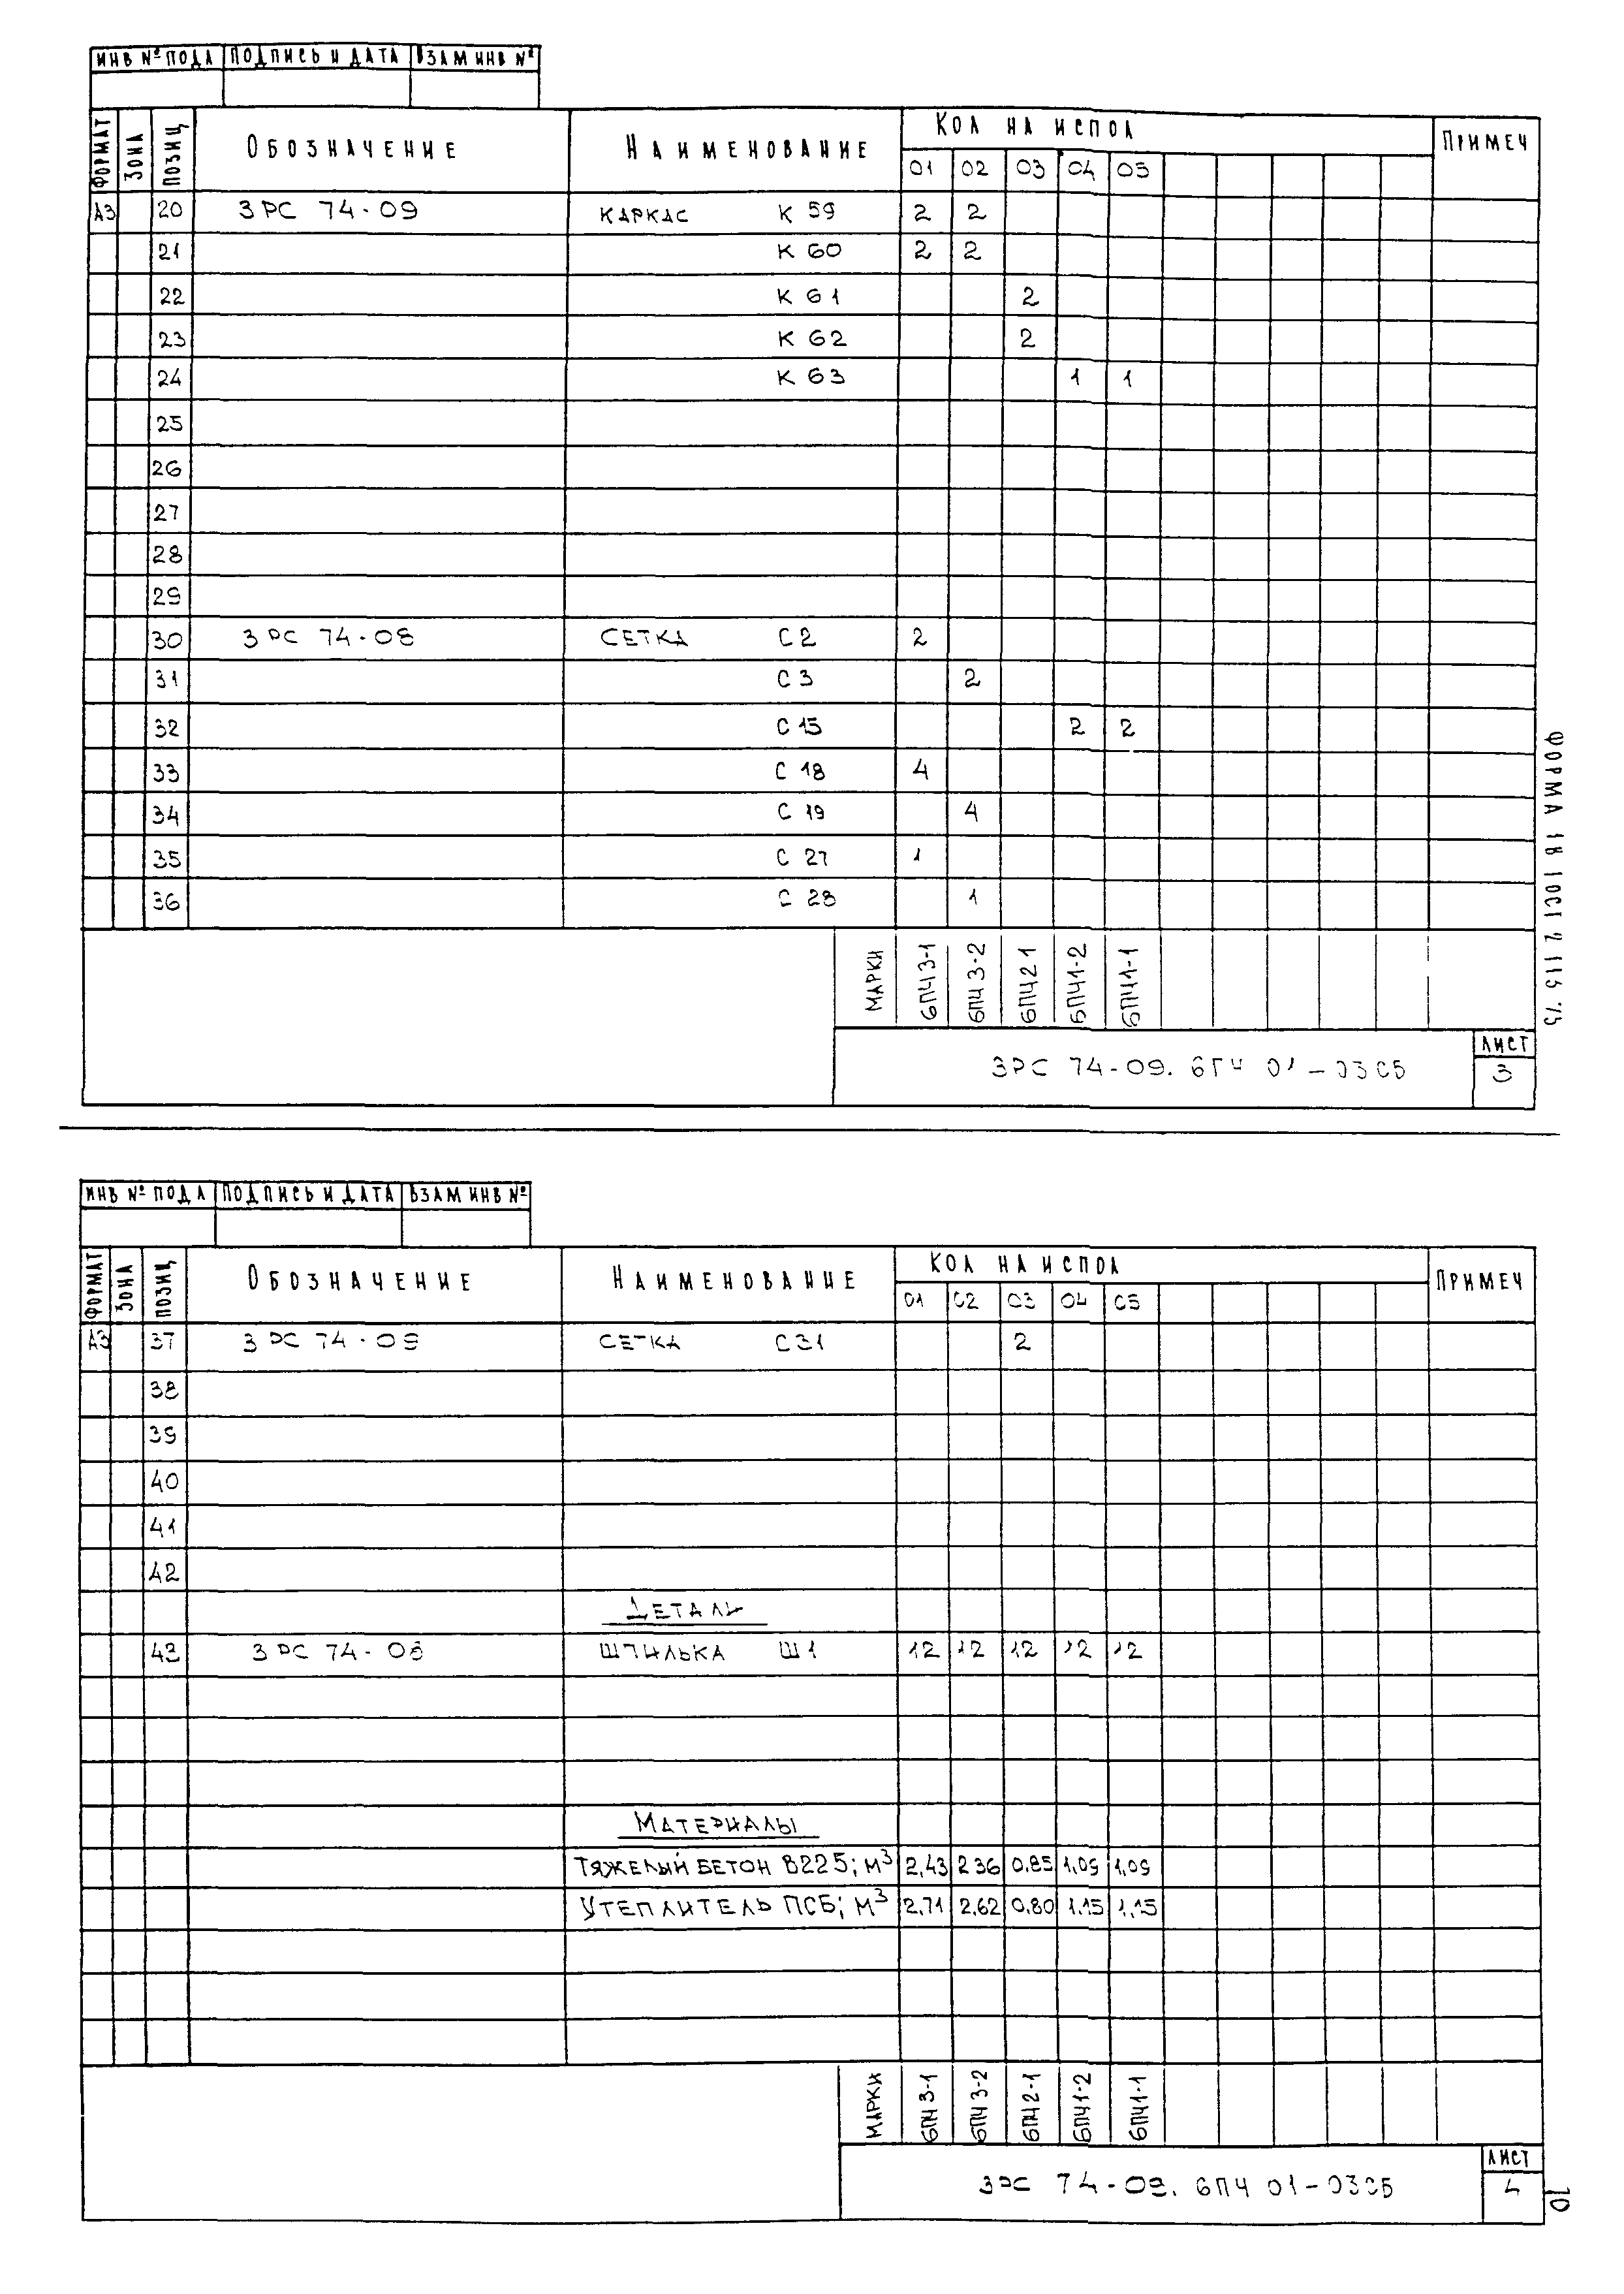 ИНВ № ПОДА ПОДПИСЬ И ДАТА ВЗАМ ИНВ №
ФОРМАТ ЗОНА ПОЗИЦ ОБОЗНАЧЕНИЕ НАИМЕНОВАНИЕ КОЛ НА ИСПОЛ ПРИМЕЧ
01 02 03 04 05
А3 20 3 РС 74-09 КАРКАС К 59 2 2
21 К 60 2 2
22 К 61 2
23 К 62 2
24 К 63 1 1
25
26
27
28
29
30 3 РС 74-08 СЕТКА С 2 2
31 С 3 2
32 С 15 2 2
33 С 18 4
34 С 19 4
35 С 27 1
36 С 28 1
МАРКИ 6ПЧ 3-1 6ПЧ 3-2 6ПЧ 2 1 6ПЧ 1-2 6ПЧ 1-1
3РС 74-09. 6ПЧ 01-03СБ
ЛИСТ
3
ФОРМА 1В ГОСТ 2 113 75
ИНВ № ПОДА ПОДПИСЬ И ДАТА ВЗАМ ИНВ №
ФОРМАТ ЗОНА ПОЗИЦ ОБОЗНАЧЕНИЕ НАИМЕНОВАНИЕ КОЛ НА ИСПОЛ ПРИМЕЧ
01 02 03 04 05
А3 37 3 РС 74-09 СЕТКА С31 2
38
39
40
41
42
ДЕТАЛИ
43 3 РС 74-08 ШПИЛЬКА Ш1 12 12 12 12 12
МАТЕРИАЛЫ
ТЯЖЕЛЫЙ БЕТОН В22 5; М³ 2,43 2 36 0,85 1,09 1,09
УТЕПЛИТЕЛЬ ПСБ; М³ 2,71 2,62 0,80 1,15 1,15
МАРКИ 6ПЧ 3-1 6ПЧ 3-2 6ПЧ 2-1 6ПЧ 1-2 6ПЧ 1-1
3РС 74-09. 6ПЧ 01-03СБ
ЛИСТ
4
10